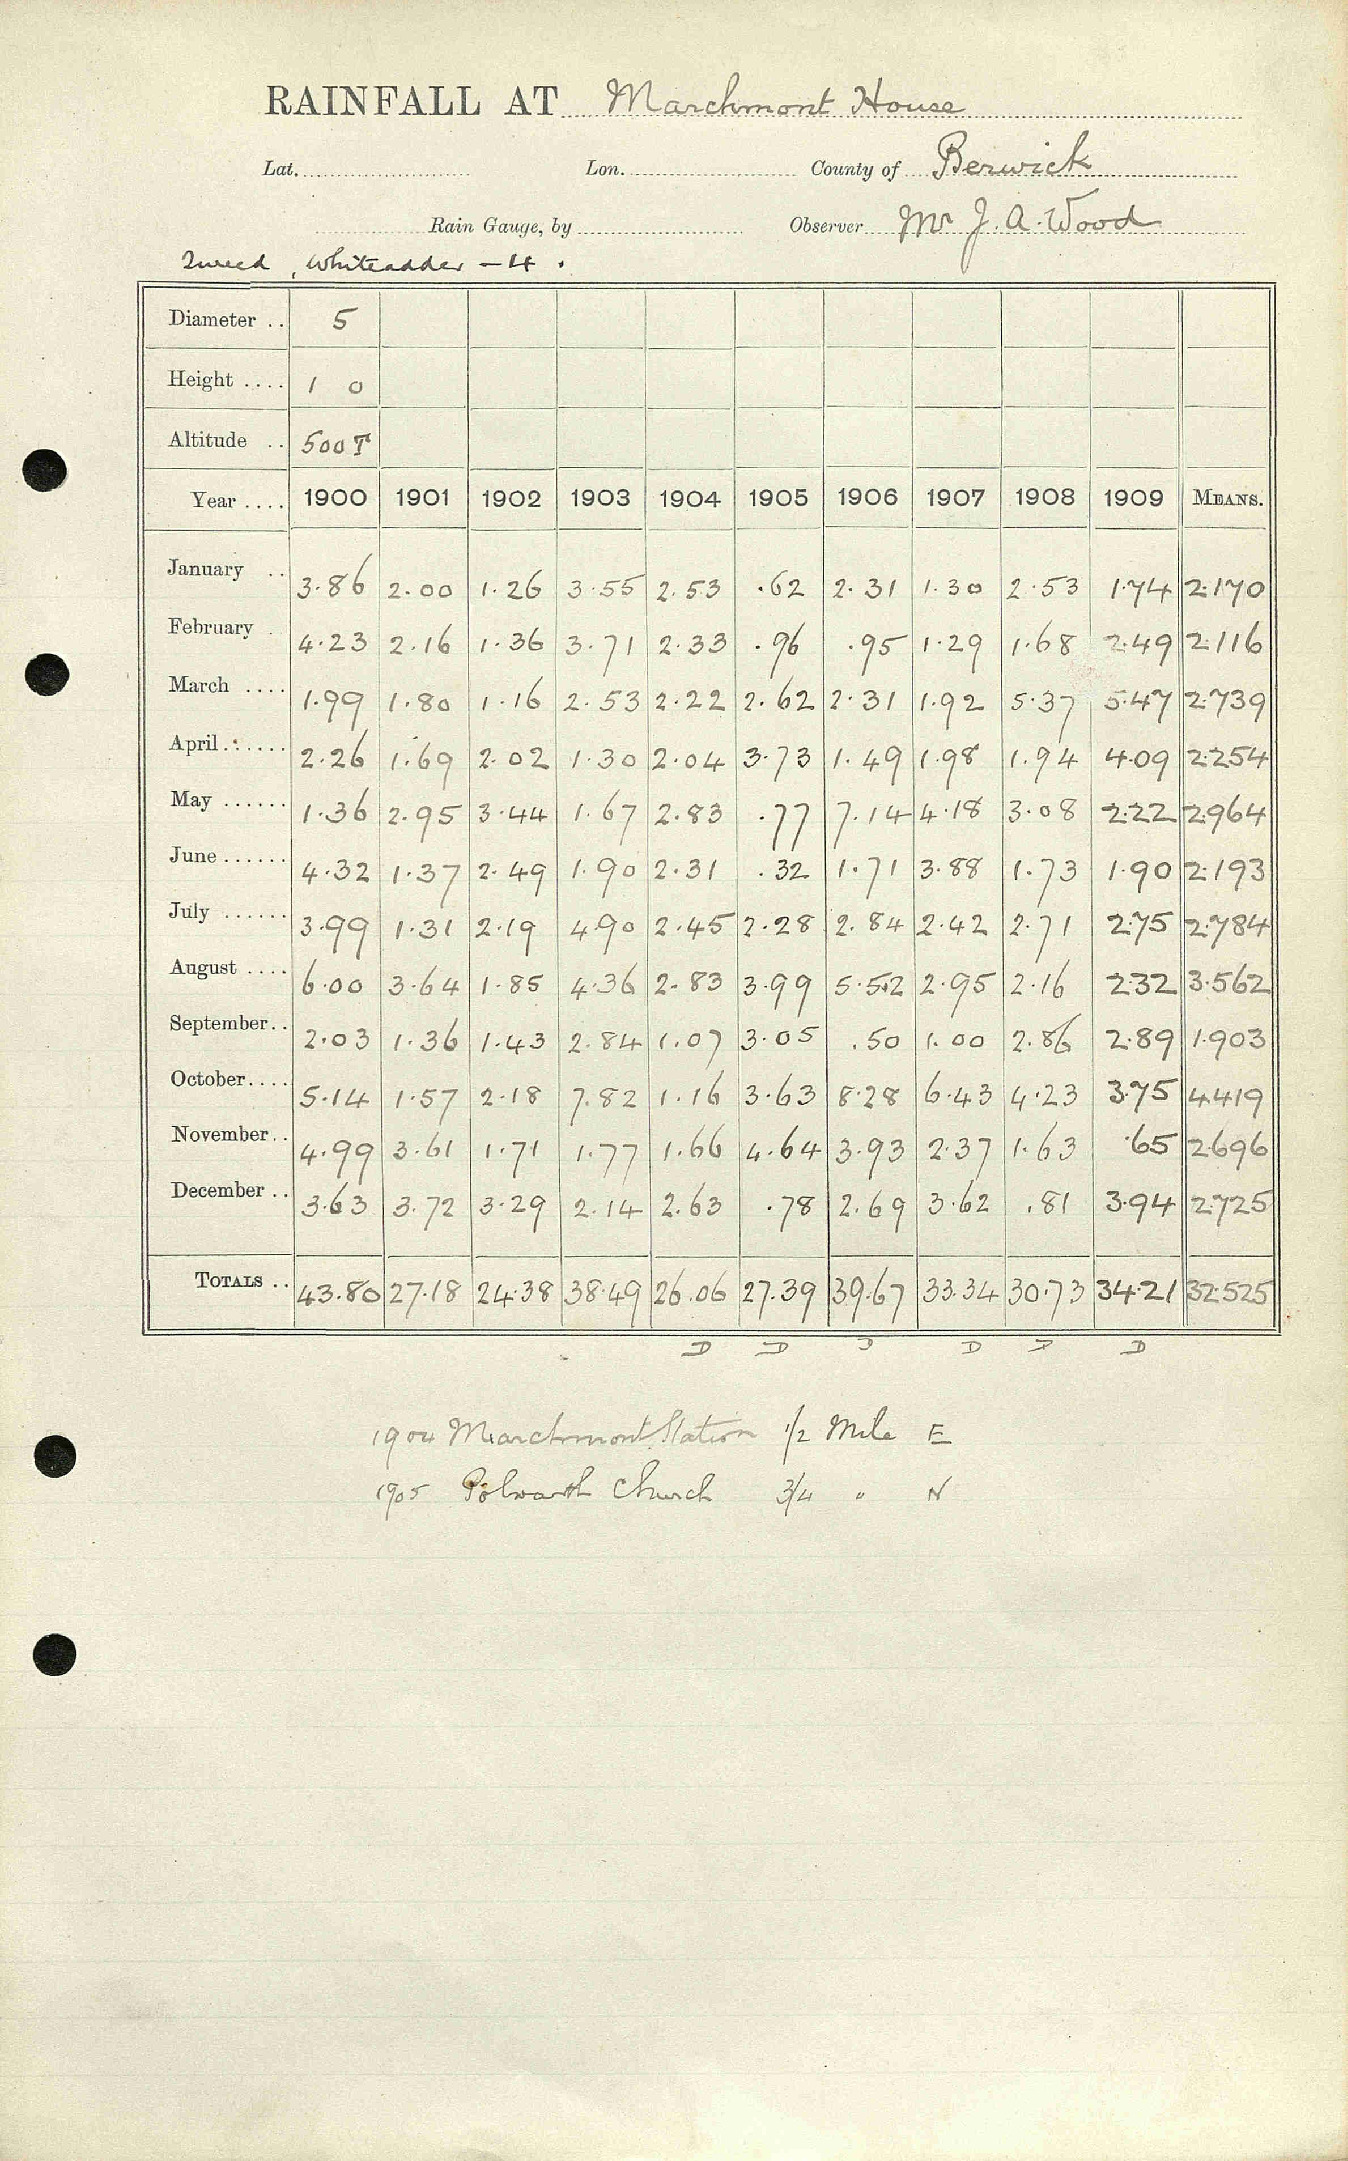 RAINFALL AT Marchmont House
Lat. Lon. County of Berwick
Rain Gauge, by Observer Mr J. A. Wood
Tweed, Whiteadder – 4.
Diameter .. 5
Height .... 1 0
Altitude .. 500 T
Year .... 1900 1901 1902 1903 1904 1905 1906 1907 1908 1909 MEANS.
January .. 3.86 2.00 1.26 3.55 2.53 .62 2.31 1.30 2.53 1.74 2.170
February . 4.23 2.16 1.36 3.71 2.33 .96 .95 1.29 1.68 2.49 2.116
March .... 1.99 1.80 1.16 2.53 2.22 2.62 2.31 1.92 5.37 5.47 2.739
April ...... 2.26 1.69 2.02 1.30 2.04 3.73 1.49 1.98 1.94 4.09 2.254
May ...... 1.36 2.95 3.44 1.67 2.83 .77 7.14 4.18 3.08 2.22 2.964
June ...... 4.32 1.37 2.49 1.90 2.31 .32 1.71 3.88 1.73 1.90 2.193
July ...... 3.99 1.31 2.19 4.90 2.45 2.28 2.84 2.42 2.71 2.75 2.784
August .... 6.00 3.64 1.85 4.36 2.83 3.99 5.52 2.95 2.16 2.32 3.562
September.. 2.03 1.36 1.43 2.84 1.07 3.05 .50 1.00 2.86 2.89 1.903
October.... 5.14 1.57 2.18 7.82 1.16 3.63 8.28 6.43 4.23 3.75 4.419
November.. 4.99 3.61 1.71 1.77 1.66 4.64 3.93 2.37 1.63 .65 2.696
December .. 3.63 3.72 3.29 2.14 2.63 .78 2.69 3.62 .81 3.94 2.725
TOTALS .. 43.80 27.18 24.38 38.49 26.06 27.39 39.67 33.34 30.73 34.21 32.525
D D D D D D
1904 Marchmont Station 1/2 Mile E
1905 Polwarth Church 3/4 " N